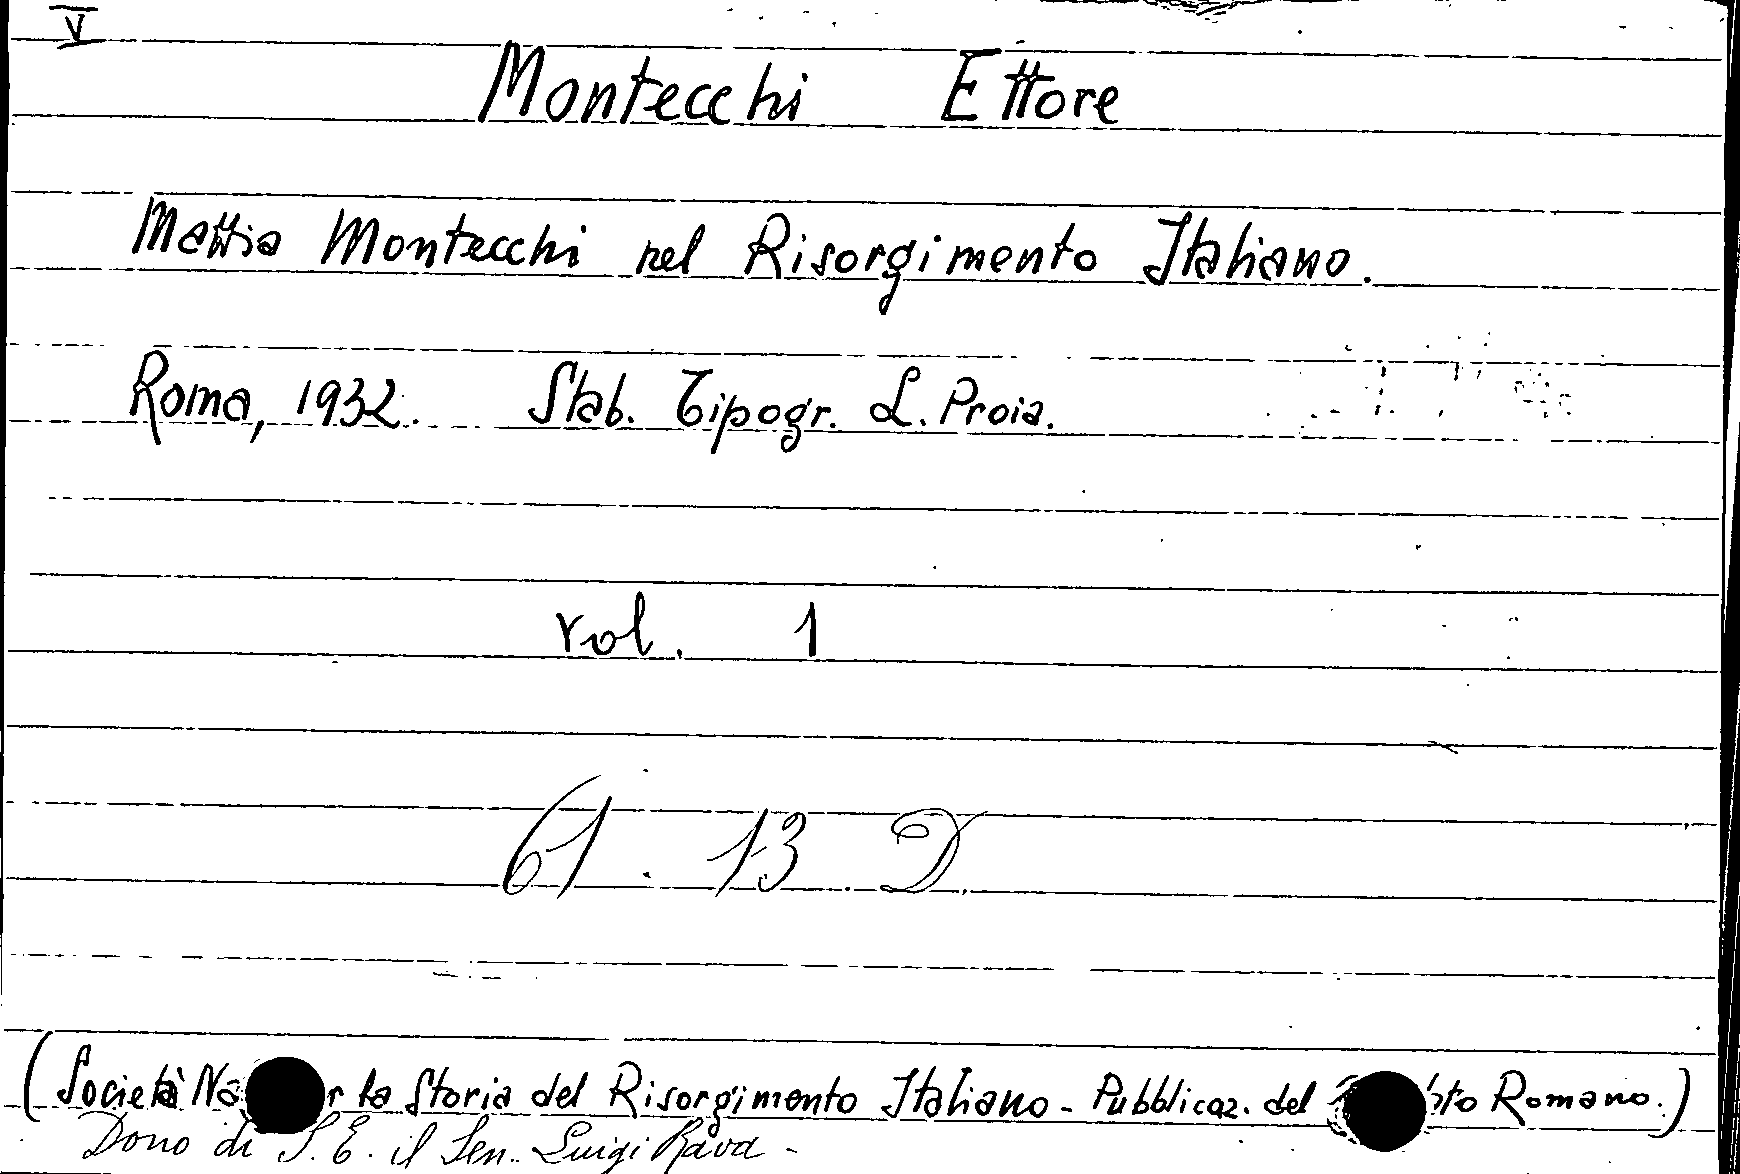 V
Montecchi Ettore
Mattia Montecchi nel Risorgimento Italiano.
Roma, 1932. Stab. Tipogr. L. Proia.
vol. 1
61. 13. D.
(Società la Storia del Risorgimento Italiano - Pubblicaz. del Romano.)
Dono di S. E. il Sen. Luigi Rava -